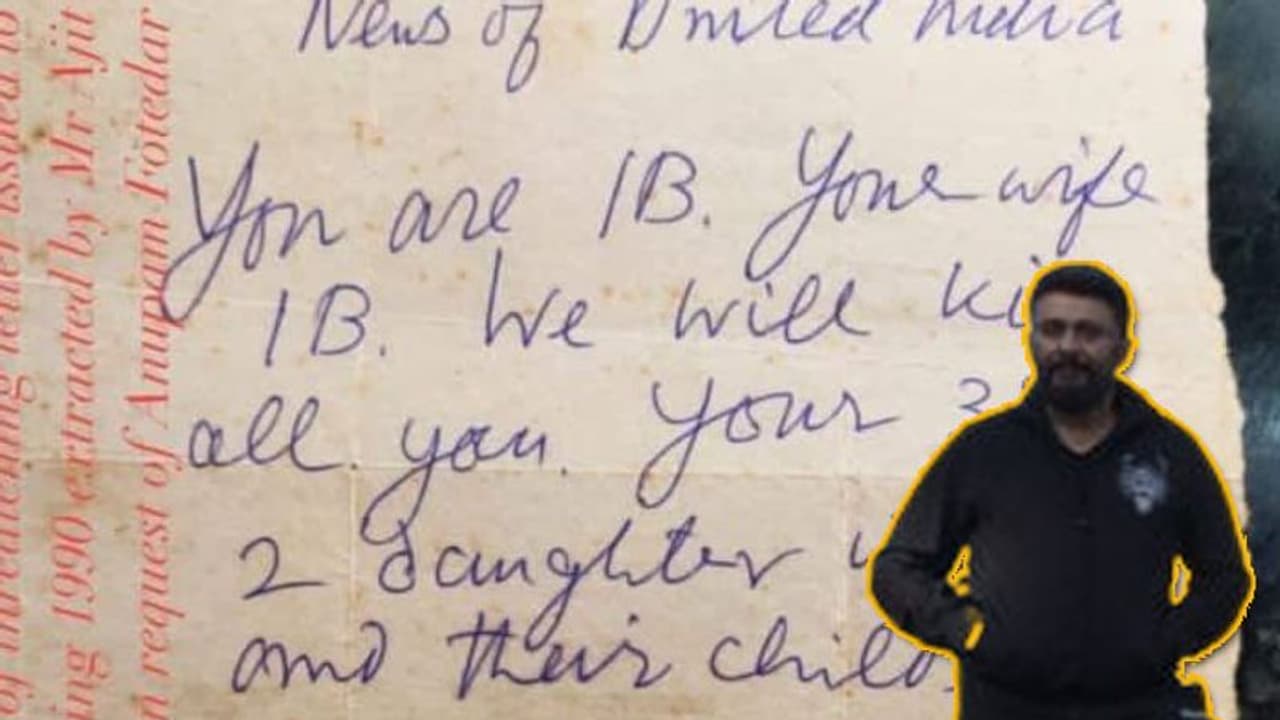 of threatening letter issued to
ing 1990 extracted by Mr Ajit
n request of Anupam Fotedar
News of United India
You are IB. Your wife
IB. We will ki
all you. Your
2 daughter
and their child